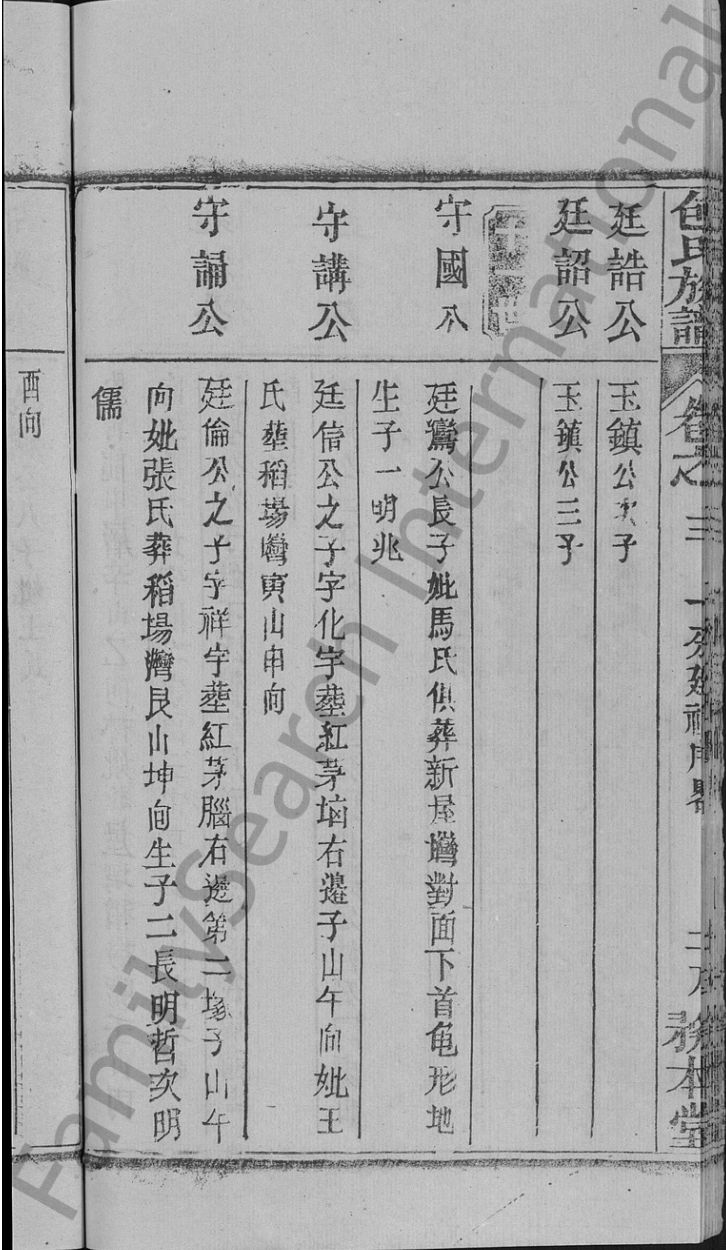 包氏族譜
卷之三
務本堂
廷誥公
玉鎮公次子
廷詔公
玉鎮公三子
守國公
廷鸞公長子妣馬氏俱葬新屋灣對面下首龜形地
生子一明兆
守講公
廷信公之子字化宇塟紅茅堖右邊子山午向妣王
氏塟稻場灣寅山申向
守誦公
廷倫公之子字祥宇塟紅茅腦右邊第二塚子山午
向妣張氏葬稻場灣艮山坤向生子二長明哲次明
儒
酉向
FamilySearch International